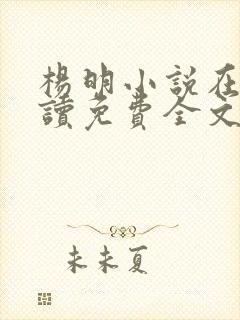 楊明小說在
讀免費全文
未未夏